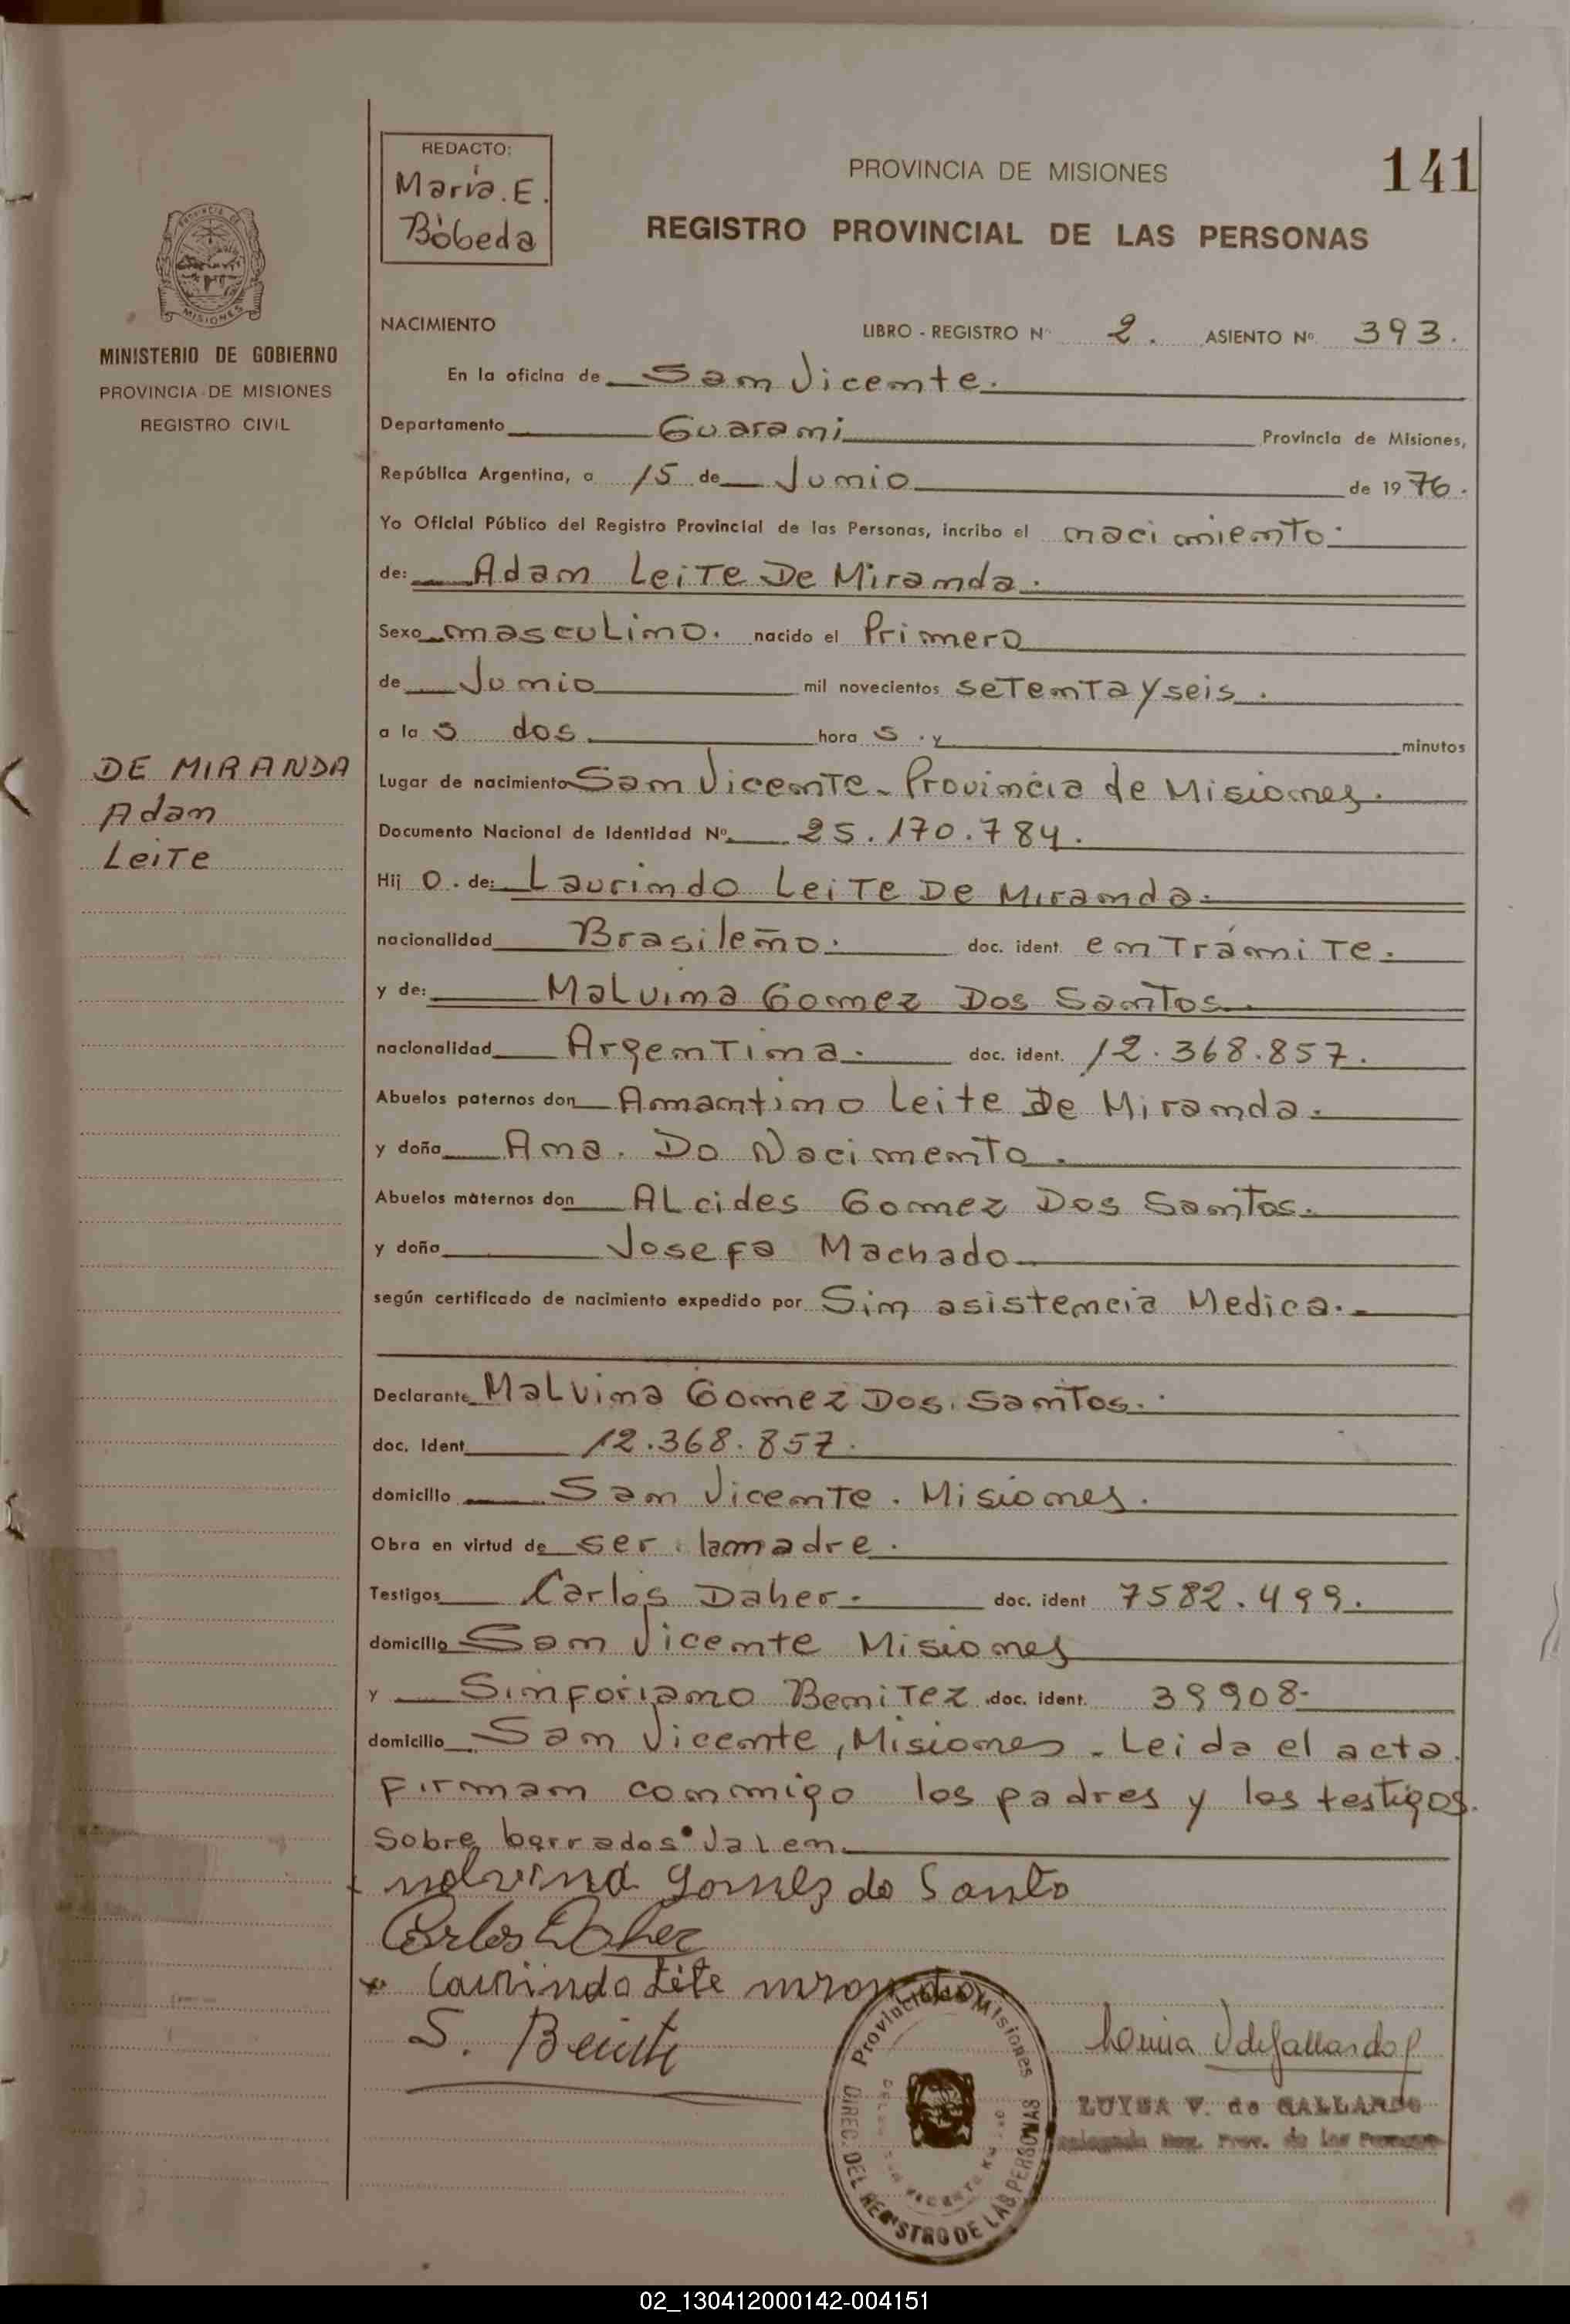 REDACTO:
María. E.
Bóbeda
PROVINCIA DE MISIONES
141
REGISTRO PROVINCIAL DE LAS PERSONAS
PROVINCIA DE
MISIONES
MINISTERIO DE GOBIERNO
PROVINCIA DE MISIONES
REGISTRO CIVIL
DE MIRANDA
Adan
Leite
NACIMIENTO LIBRO - REGISTRO Nº 2. ASIENTO Nº 393.
En la oficina de San Vicente.
Departamento Guarani Provincia de Misiones,
República Argentina, a 15 de Junio de 1976.
Yo Oficial Público del Registro Provincial de las Personas, incribo el nacimiento.
de: Adan Leite De Miranda.
Sexo masculino. nacido el Primero
de Junio mil novecientos setenta y seis.
a las dos. horas. y minutos
Lugar de nacimiento San Vicente - Provincia de Misiones.
Documento Nacional de Identidad Nº 25.170.784.
Hijo. de: Laurindo Leite De Miranda.
nacionalidad Brasileño. doc. ident. en Trámite.
y de: Malvina Gomez Dos Santos.
nacionalidad Argentina. doc. ident. 12.368.857.
Abuelos paternos don Amantino Leite De Miranda.
y doña Ana. Do Nacimento.
Abuelos maternos don Alcides Gomez Dos Santos.
y doña Josefa Machado
según certificado de nacimiento expedido por Sin asistencia Medica.
Declarante Malvina Gomez Dos Santos.
doc. Ident 12.368.857.
domicilio San Vicente. Misiones.
Obra en virtud de ser la madre.
Testigos Carlos Daher. doc. ident 7582.499.
domicilio San Vicente Misiones
y Sinforiano Benitez doc. ident. 39908-
domicilio San Vicente, Misiones - Leida el acta.
Firman conmigo los padres y los testigos.
Sobre borrados Valen.
malvina gomez do Santo
Carlos Daher
Laurindo Leite
S. Benite
Provincia de Misiones
DIREC. DEL REGISTRO DE LAS PERSONAS
Louisa V de Gallardo
LUISA V. de GALLARDO
Delegada Reg. Prov. de las Personas
02_130412000142-004151